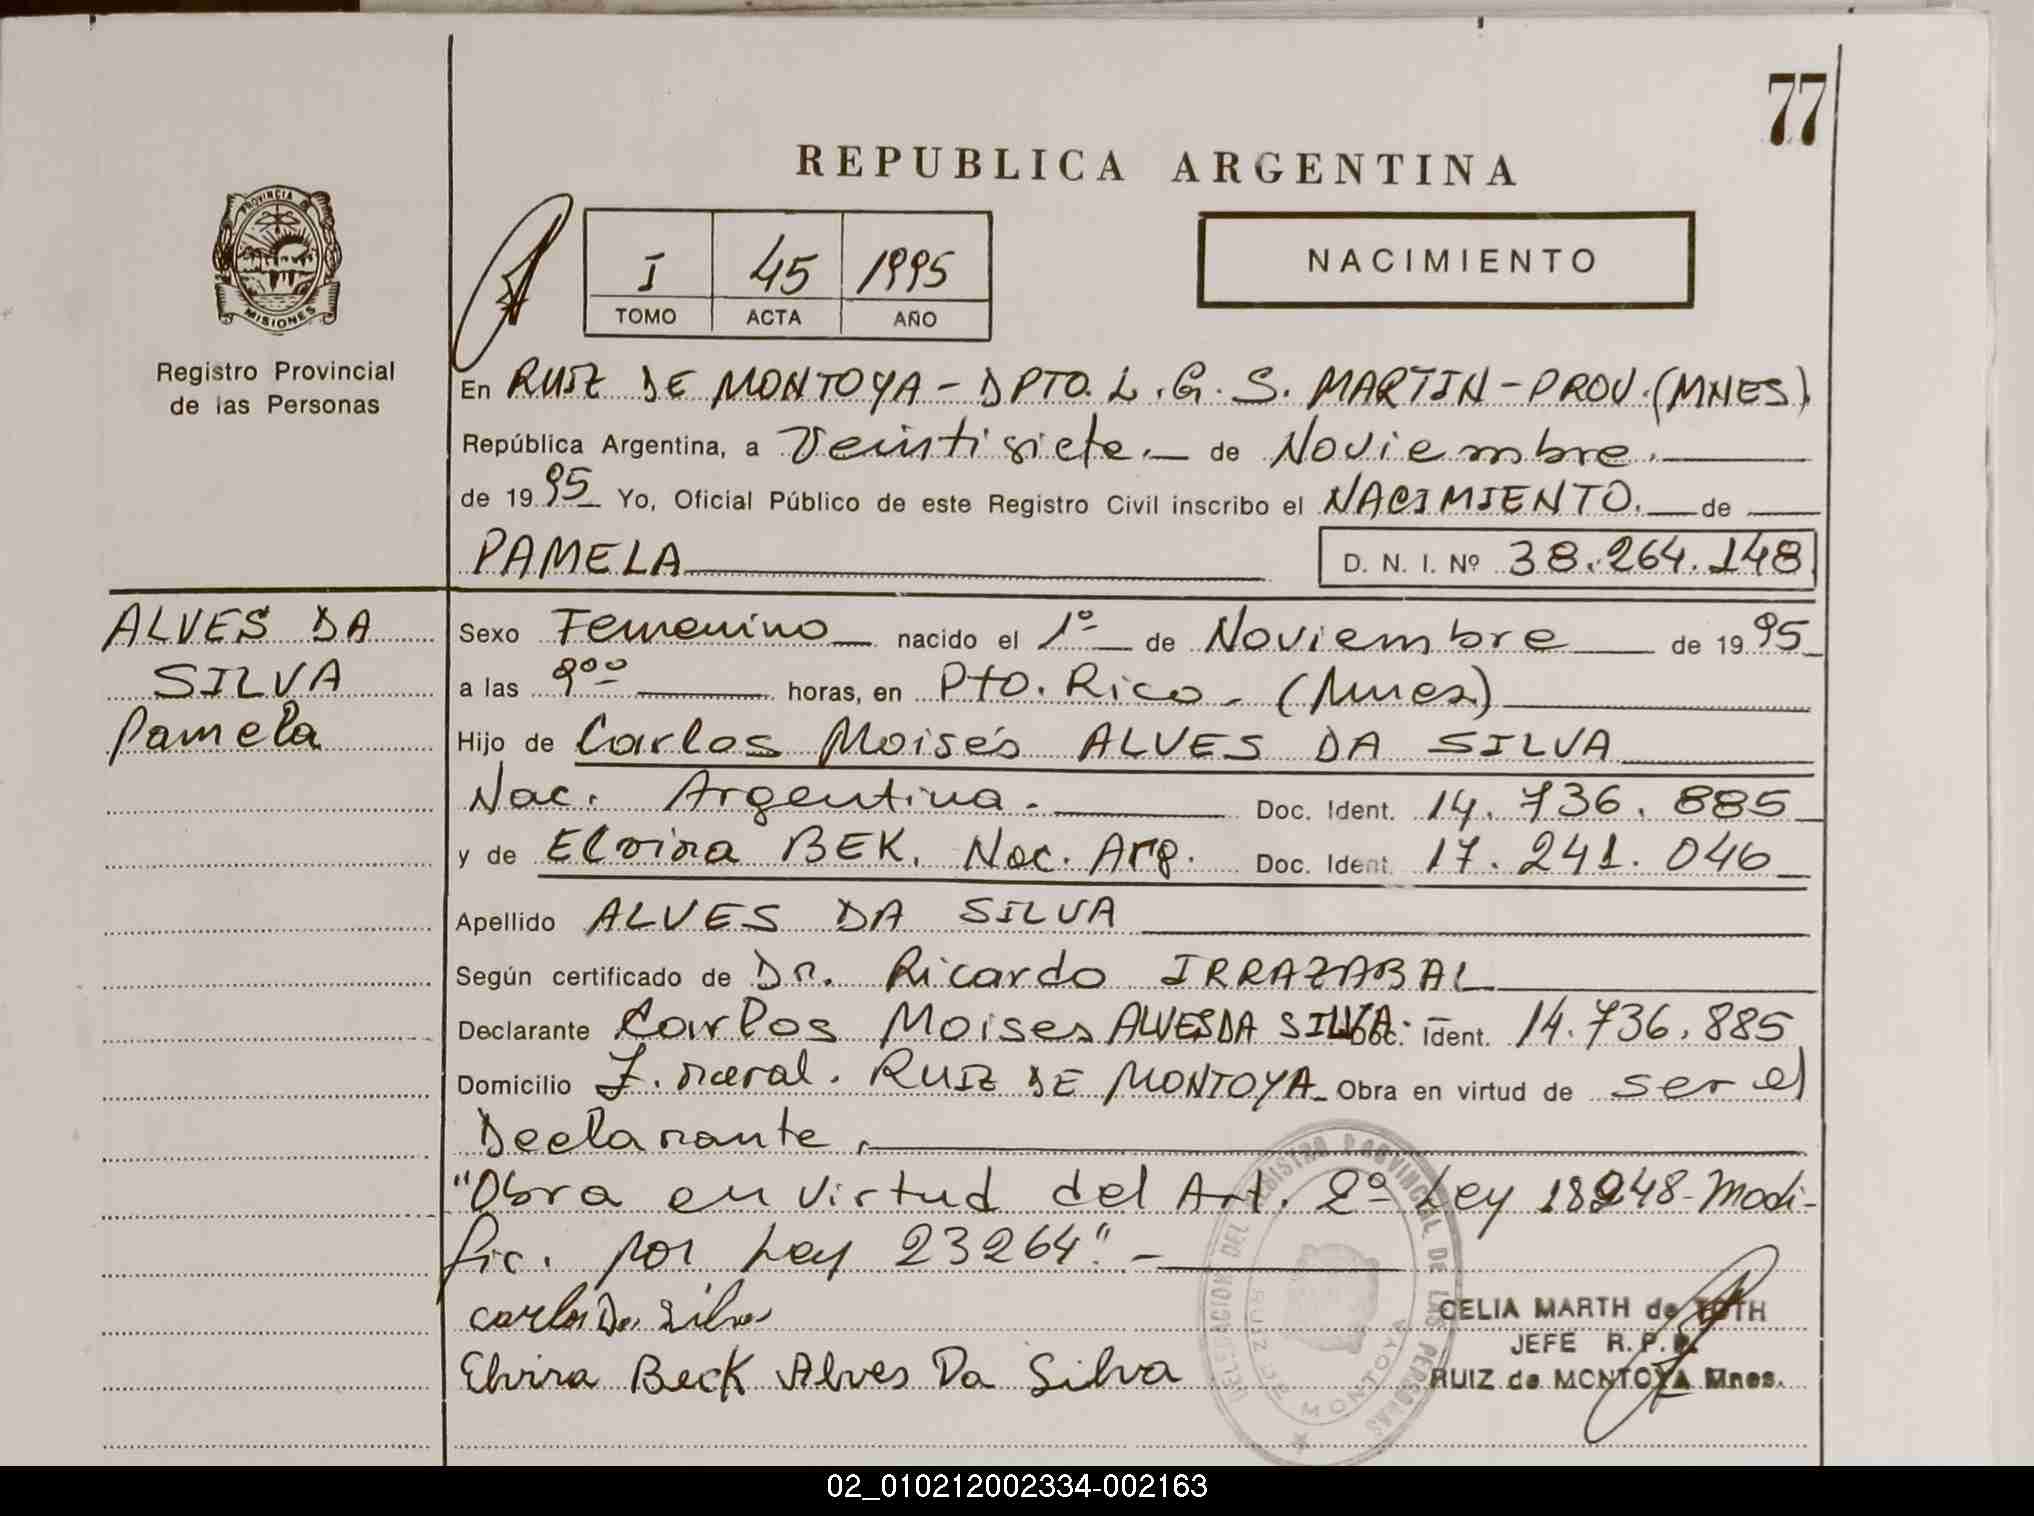 77
REPUBLICA ARGENTINA
PROVINCIA D
MISIONES
Registro Provincial
de las Personas
I 45 1995
TOMO ACTA AÑO
NACIMIENTO
En RUIZ DE MONTOYA - DPTO. L.G.S. MARTIN - PROV. (MNES)
República Argentina, a Veintisiete.— de Noviembre.
de 1995 Yo, Oficial Público de este Registro Civil inscribo el NACIMIENTO. de
PAMELA D. N. I. Nº 38.264.148
ALVES DA
SILVA
Pamela
Sexo Femenino nacido el 1º de Noviembre de 1995
a las 9ºº horas, en Pto. Rico - (Mnes)
Hijo de Carlos Moisés ALVES DA SILVA
Nac. Argentina. Doc. Ident. 14.736.885
y de Elvira BEK. Nac. Arg. Doc. Ident. 17.241.046
Apellido ALVES DA SILVA
Según certificado de Dr. Ricardo IRRAZABAL
Declarante Carlos Moises ALVES DA SILVA. Doc. Ident. 14.736.885
Domicilio Z. rural. RUIZ DE MONTOYA Obra en virtud de ser el
Declarante.
"Obra en virtud del Art. 2º Ley 18248 - Modi-
fic. por Ley 23264". -
Carlos Da Silva
Elvira Beck Alves Da Silva
DELEGACION DEL REGISTRO PROVINCIAL DE LAS PERSONAS
RUIZ DE MONTOYA
CELIA MARTH de TOTH
JEFE R.P.P.
RUIZ de MONTOYA Mnes.
02_010212002334-002163